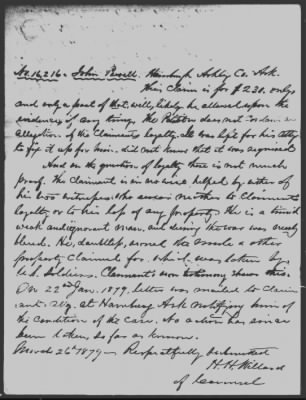 No. 16,216 - John Powell. Hamburgh Ashley Co. Ark.
This claim is for $220. only
and only a part of that, will likely be allowed upon the
evidence of any thing. The Petition does not contain an
allegation of the Claimants loyalty. All was left for his Atty
to fix it up for him. did not know that it was required
And on the question of loyalty there is not much
proof. The Claimant is in no wise helped by either of
his two witnesses who swear neither to Claimants
loyalty or to his loss of any property. He is a
weak and ignorant man, and during the war was nearly
blind. His owned the mule & other
property Claimed for, which was taken by
U.S. Soldiers. Claimants own testimony shows this.
On 22nd Jan. 1879. letter was mailed to Claim-
ant at Hamburg Ark notifying him of
the condition of the case. No action has since
been taken, so far as known.
March 26th 1879 - Respectfully submitted
H. H. Willard
of Counsel